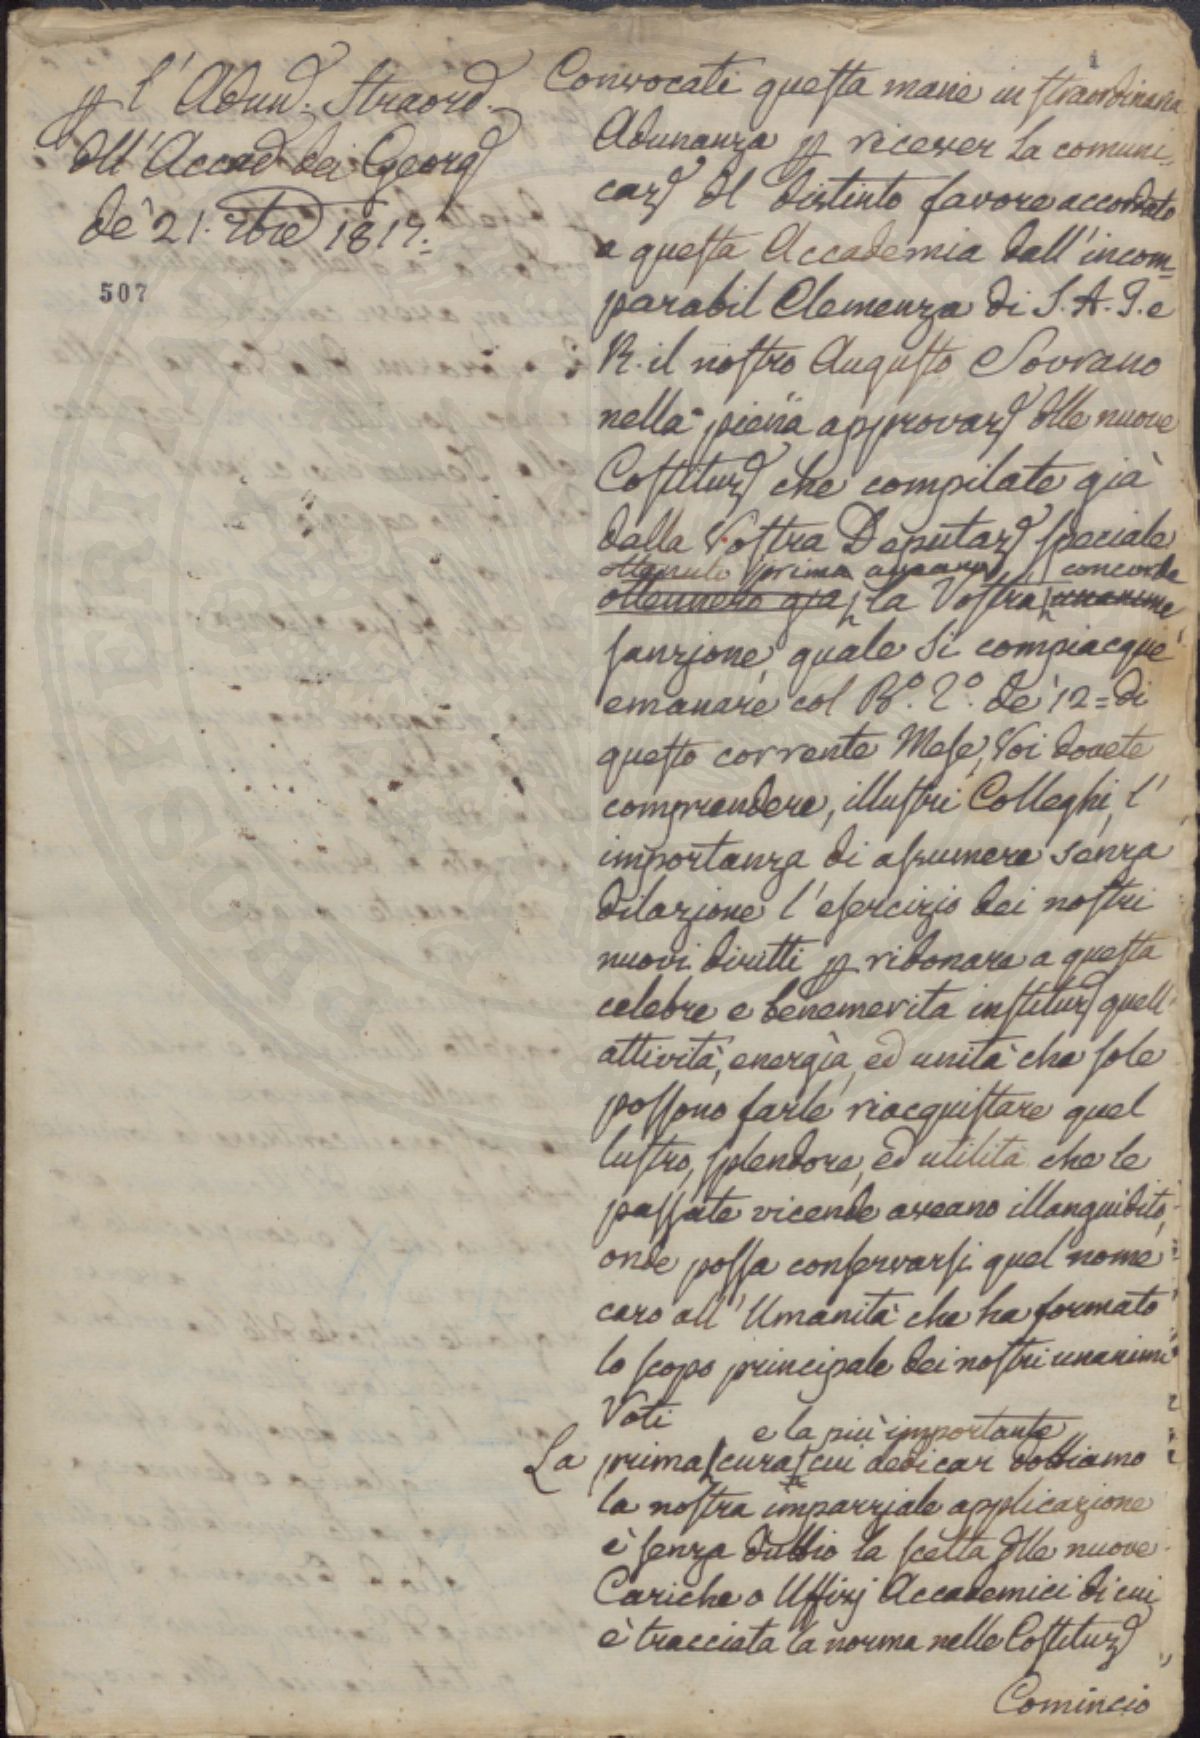 p l'Adun. Straord.
dll'Accad dei Georg
de' 21. 7bre 1817.
507
Convocati questa mane in straordinaria
Adunanza p ricever la comuni=
caz dl distinto favore accordato
a questa Accademia dall'incom=
parabil Clemenza di S. A. I. e
R. il nostro Augusto Sovrano
nella piena approvaz dlle nuove
Costituz che compilate già
dalla Vostra Deputaz speciale
ottenuto prima aveano concorde
ottennero già la Vostra unanime
sanzione, quale Si compiacque
emanare col B.º R.º de' 12= di
questo corrente Mese, Voi dovete
comprendere, illustri Colleghi, l'
importanza di assumere senza
dilazione l'esercizio dei nostri
nuovi diritti p ridonare a questa
celebre e benemerita instituz quell'
attività, energia, ed unità che sole
possono farle riacquistare quel
lustro, splendore, ed utilità che le
passate vicende aveano illanguidito,
onde possa conservarsi quel nome
caro all'Umanità che ha formato
lo scopo principale dei nostri unanimi
Voti
e la più importante
La prima cura cui dedicar dobbiamo
la nostra imparziale applicazione
è senza dubbio la scelta dlle nuove
Cariche o Uffizj Accademici di cui
è tracciata la norma nelle Costituz
Comincio